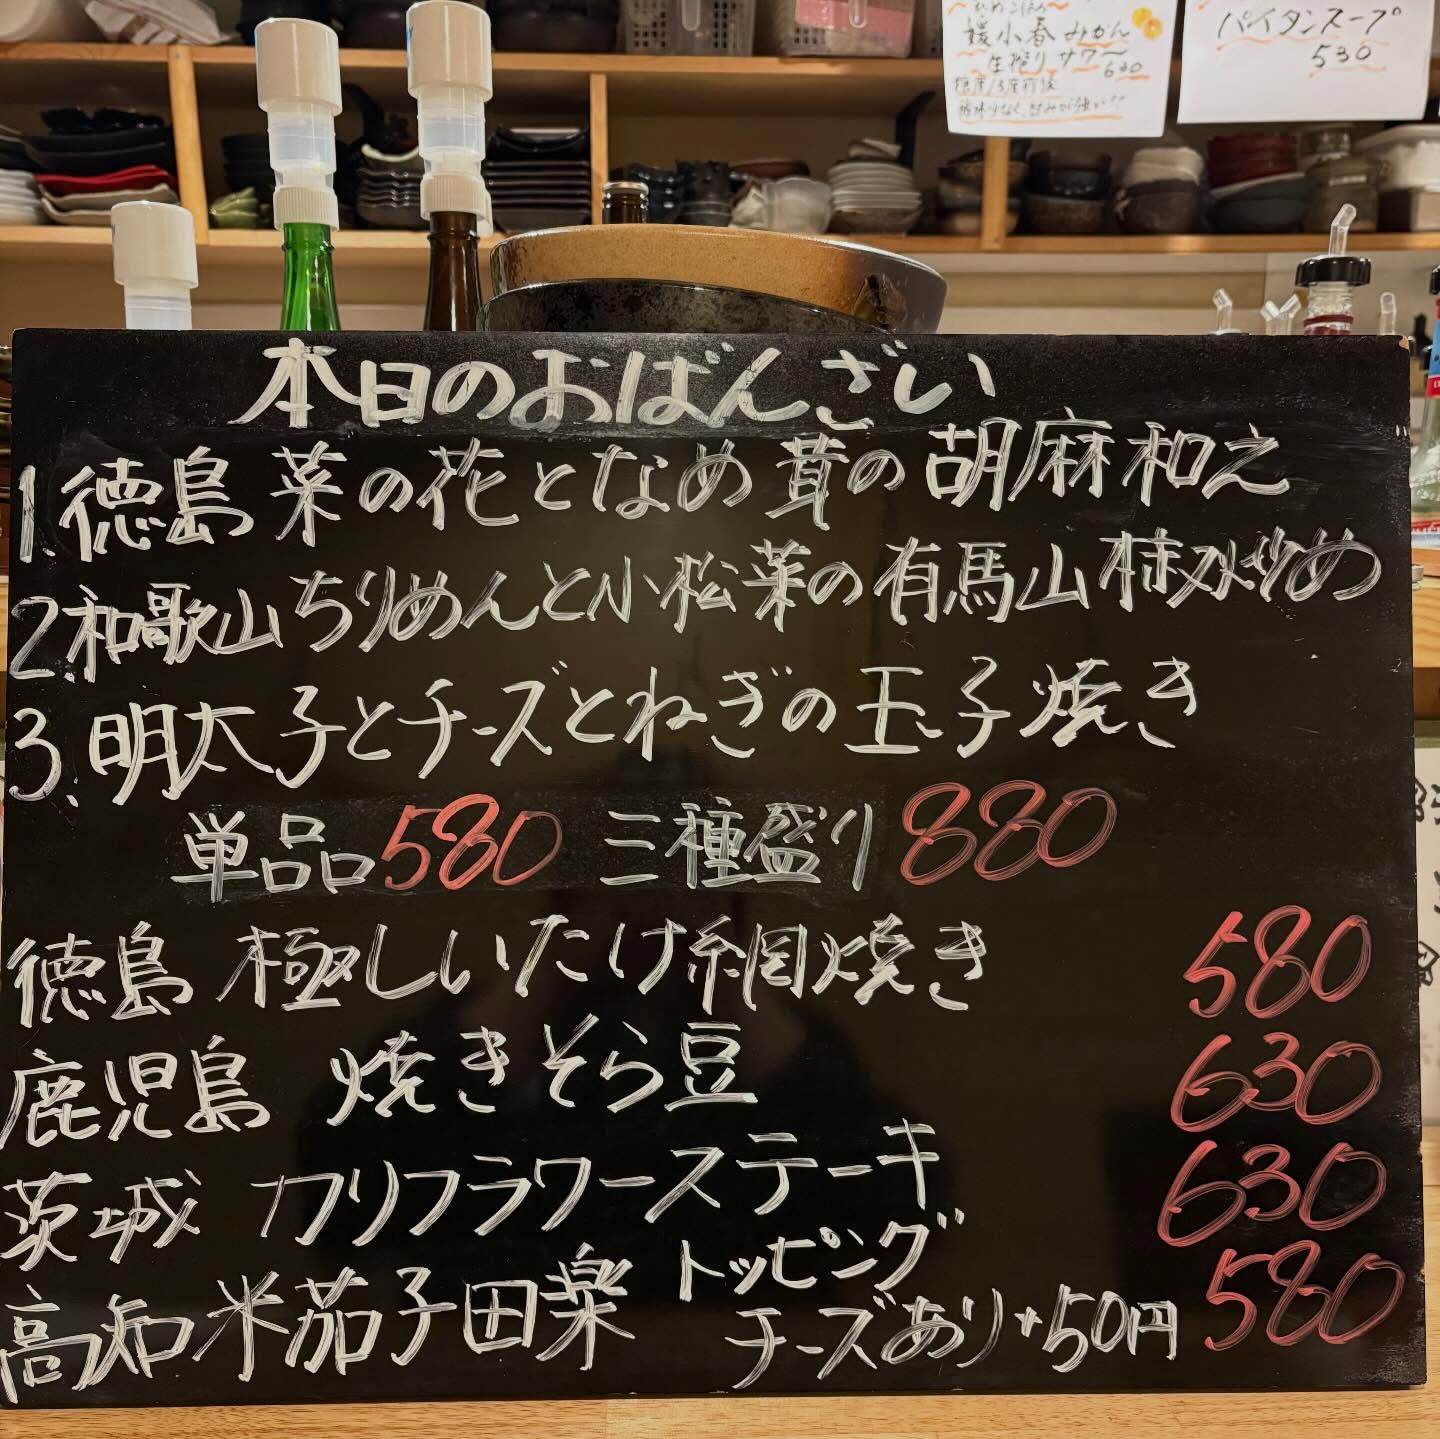 媛小春みかん
生搾りサワー
630
パイタンスープ
530
本日のおばんざい
1.徳島 菜の花となめ茸の胡麻和え
2.和歌山ちりめんと小松菜の有馬山椒炒め
3.明太子とチーズとねぎの玉子焼き
単品580 三種盛り880
徳島 極しいたけ網焼き 580
鹿児島 焼きそら豆 630
茨城 カリフラワーステーキ 630
高知 米茄子田楽 トッピング チーズあり+50円 580